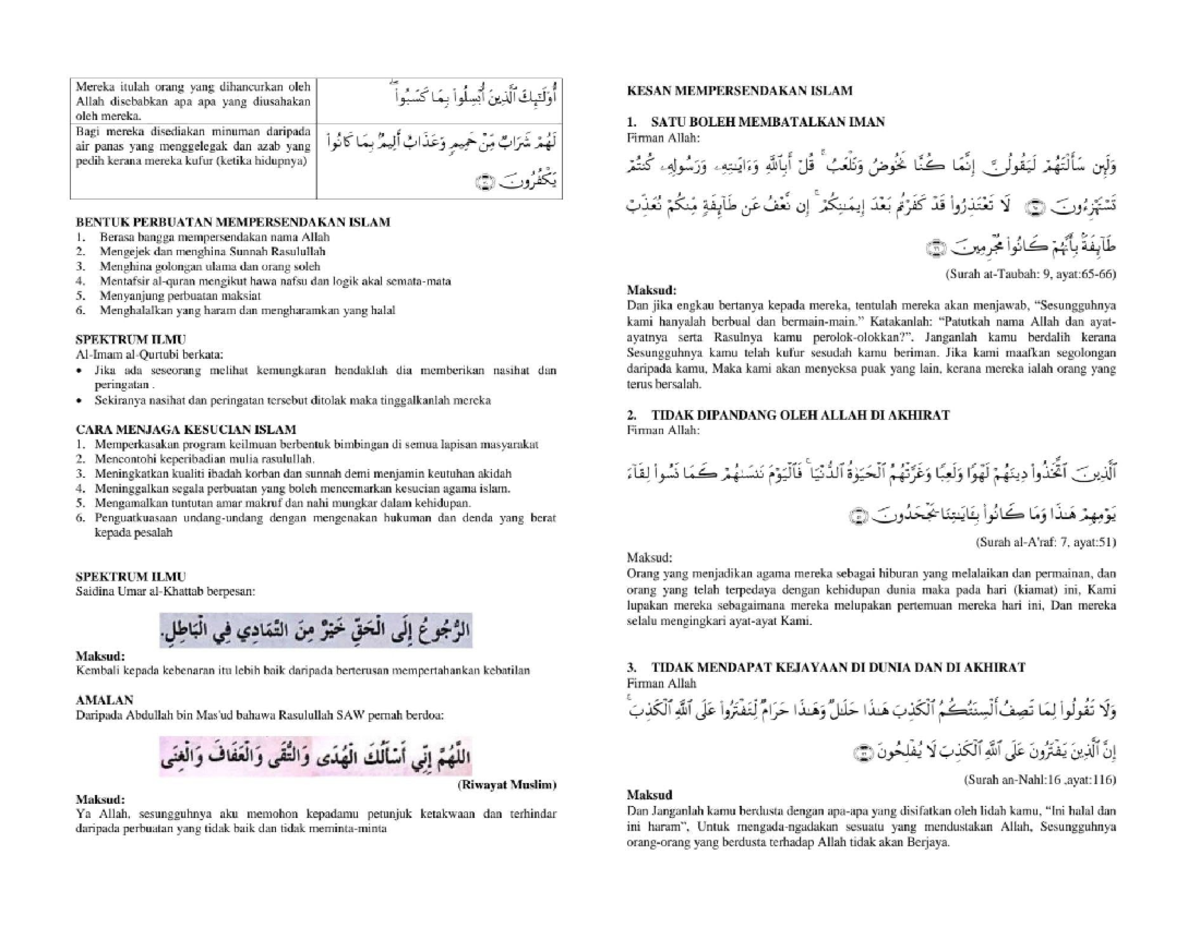 Mereka itulah orang yang dihancurkan oleh
Allah disebabkan apa apa yang diusahakan
oleh mereka.
أُوْلَٰٓئِكَ ٱلَّذِينَ أُبۡسِلُواْ بِمَا كَسَبُواْۖ
Bagi mereka disediakan minuman daripada
air panas yang menggelegak dan azab yang
pedih kerana mereka kufur (ketika hidupnya)
لَهُمۡ شَرَابٞ مِّنۡ حَمِيمٖ وَعَذَابٌ أَلِيمُۢ بِمَا كَانُواْ
يَكۡفُرُونَ
BENTUK PERBUATAN MEMPERSENDAKAN ISLAM
1. Berasa bangga mempersendakan nama Allah
2. Mengejek dan menghina Sunnah Rasulullah
3. Menghina golongan ulama dan orang soleh
4. Mentafsir al-quran mengikut hawa nafsu dan logik akal semata-mata
5. Menyanjung perbuatan maksiat
6. Menghalalkan yang haram dan mengharamkan yang halal
SPEKTRUM ILMU
Al-Imam al-Qurtubi berkata:
• Jika ada seseorang melihat kemungkaran hendaklah dia memberikan nasihat dan
peringatan .
• Sekiranya nasihat dan peringatan tersebut ditolak maka tinggalkanlah mereka
CARA MENJAGA KESUCIAN ISLAM
1. Memperkasakan program keilmuan berbentuk bimbingan di semua lapisan masyarakat
2. Mencontohi keperibadian mulia rasulullah.
3. Meningkatkan kualiti ibadah korban dan sunnah demi menjamin keutuhan akidah
4. Meninggalkan segala perbuatan yang boleh mencemarkan kesucian agama islam.
5. Mengamalkan tuntutan amar makruf dan nahi mungkar dalam kehidupan.
6. Penguatkuasaan undang-undang dengan mengenakan hukuman dan denda yang berat
kepada pesalah
SPEKTRUM ILMU
Saidina Umar al-Khattab berpesan:
الرُّجُوعُ إِلَى الْحَقِّ خَيْرٌ مِنَ التَّمَادِي فِي الْبَاطِلِ.
Maksud:
Kembali kepada kebenaran itu lebih baik daripada berterusan mempertahankan kebatilan
AMALAN
Daripada Abdullah bin Mas'ud bahawa Rasulullah SAW pernah berdoa:
اللَّهُمَّ إِنِّي أَسْأَلُكَ الْهُدَى وَالتُّقَى وَالْعَفَافَ وَالْغِنَى
(Riwayat Muslim)
Maksud:
Ya Allah, sesungguhnya aku memohon kepadamu petunjuk ketakwaan dan terhindar
daripada perbuatan yang tidak baik dan tidak meminta-minta
KESAN MEMPERSENDAKAN ISLAM
1. SATU BOLEH MEMBATALKAN IMAN
Firman Allah:
وَلَئِن سَأَلۡتَهُمۡ لَيَقُولُنَّ إِنَّمَا كُنَّا نَخُوضُ وَنَلۡعَبُۚ قُلۡ أَبِٱللَّهِ وَءَايَٰتِهِۦ وَرَسُولِهِۦ كُنتُمۡ
تَسۡتَهۡزِءُونَ ۝ لَا تَعۡتَذِرُواْ قَدۡ كَفَرۡتُم بَعۡدَ إِيمَٰنِكُمۡۚ إِن نَّعۡفُ عَن طَآئِفَةٖ مِّنكُمۡ نُعَذِّبۡ
طَآئِفَةَۢ بِأَنَّهُمۡ كَانُواْ مُجۡرِمِينَ
(Surah at-Taubah: 9, ayat:65-66)
Maksud:
Dan jika engkau bertanya kepada mereka, tentulah mereka akan menjawab, “Sesungguhnya
kami hanyalah berbual dan bermain-main.” Katakanlah: “Patutkah nama Allah dan ayat-
ayatnya serta Rasulnya kamu perolok-olokkan?”. Janganlah kamu berdalih kerana
Sesungguhnya kamu telah kufur sesudah kamu beriman. Jika kami maafkan segolongan
daripada kamu, Maka kami akan menyeksa puak yang lain, kerana mereka ialah orang yang
terus bersalah.
2. TIDAK DIPANDANG OLEH ALLAH DI AKHIRAT
Firman Allah:
ٱلَّذِينَ ٱتَّخَذُواْ دِينَهُمۡ لَهۡوٗا وَلَعِبٗا وَغَرَّتۡهُمُ ٱلۡحَيَوٰةُ ٱلدُّنۡيَاۚ فَٱلۡيَوۡمَ نَنسَىٰهُمۡ كَمَا نَسُواْ لِقَآءَ
يَوۡمِهِمۡ هَٰذَا وَمَا كَانُواْ بِـَٔايَٰتِنَا يَجۡحَدُونَ
(Surah al-A'raf: 7, ayat:51)
Maksud:
Orang yang menjadikan agama mereka sebagai hiburan yang melalaikan dan permainan, dan
orang yang telah terpedaya dengan kehidupan dunia maka pada hari (kiamat) ini, Kami
lupakan mereka sebagaimana mereka melupakan pertemuan mereka hari ini, Dan mereka
selalu mengingkari ayat-ayat Kami.
3. TIDAK MENDAPAT KEJAYAAN DI DUNIA DAN DI AKHIRAT
Firman Allah
وَلَا تَقُولُواْ لِمَا تَصِفُ أَلۡسِنَتُكُمُ ٱلۡكَذِبَ هَٰذَا حَلَٰلٞ وَهَٰذَا حَرَامٞ لِّتَفۡتَرُواْ عَلَى ٱللَّهِ ٱلۡكَذِبَۚ
إِنَّ ٱلَّذِينَ يَفۡتَرُونَ عَلَى ٱللَّهِ ٱلۡكَذِبَ لَا يُفۡلِحُونَ
(Surah an-Nahl:16 ,ayat:116)
Maksud
Dan Janganlah kamu berdusta dengan apa-apa yang disifatkan oleh lidah kamu, “Ini halal dan
ini haram”, Untuk mengada-ngadakan sesuatu yang mendustakan Allah, Sesungguhnya
orang-orang yang berdusta terhadap Allah tidak akan Berjaya.